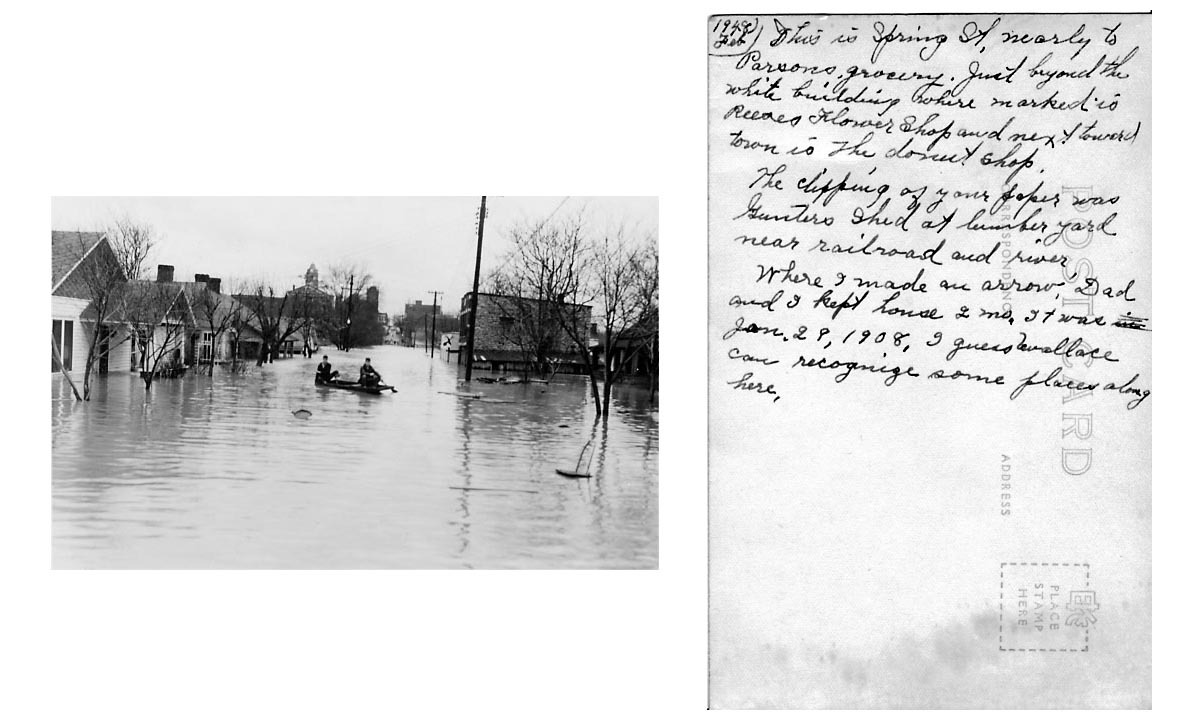 1948
Feb) This is Spring St, nearly to
Parsons grocery. Just beyond the
white building where marked is
Reeves Flower Shop and next toward
town is the donut shop.
The clipping of your paper was
Gunters Shed at lumber yard
near railroad and river,
Where I made an arrow, Dad
and I kept house 2 mo, It was in
Jan. 29, 1908, I guess Wallace
can recognize some places along
here,
POST CARD
CORRESPONDENCE
ADDRESS
PLACE
STAMP
HERE
EKC